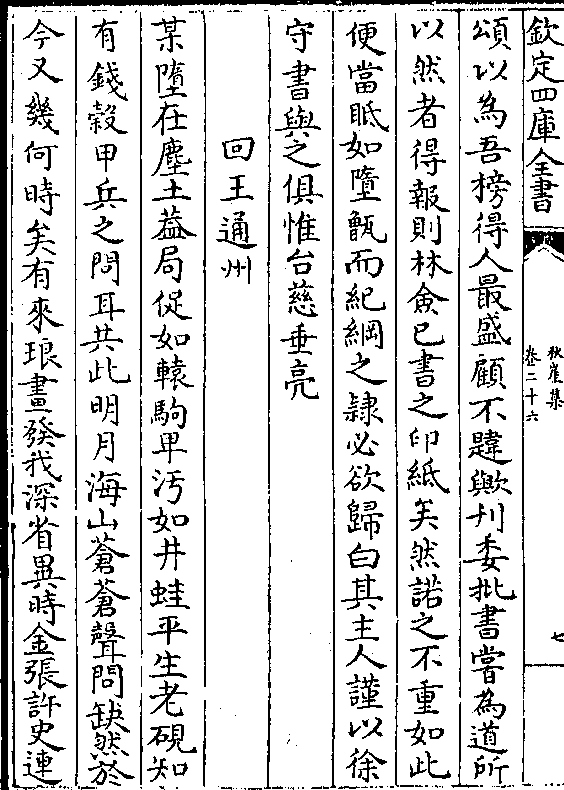 欽定四庫全書
秋崖集
卷三十六
七
頌以為吾榜得人最盛顧不韙歟刋委批書嘗為道所
以然者得報則林僉已書之印紙矣然諾之不重如此
便當眂如墮甑而紀綱之隷必欲歸白其主人謹以徐
守書與之俱惟台慈垂亮
回王通州
某墮在塵土葢局促如轅駒卑汚如井蛙平生老硯知
有錢穀甲兵之問耳共此明月海山蒼蒼聲問缺然於
今又幾何時矣有來琅畫發我深省異時金張許史連